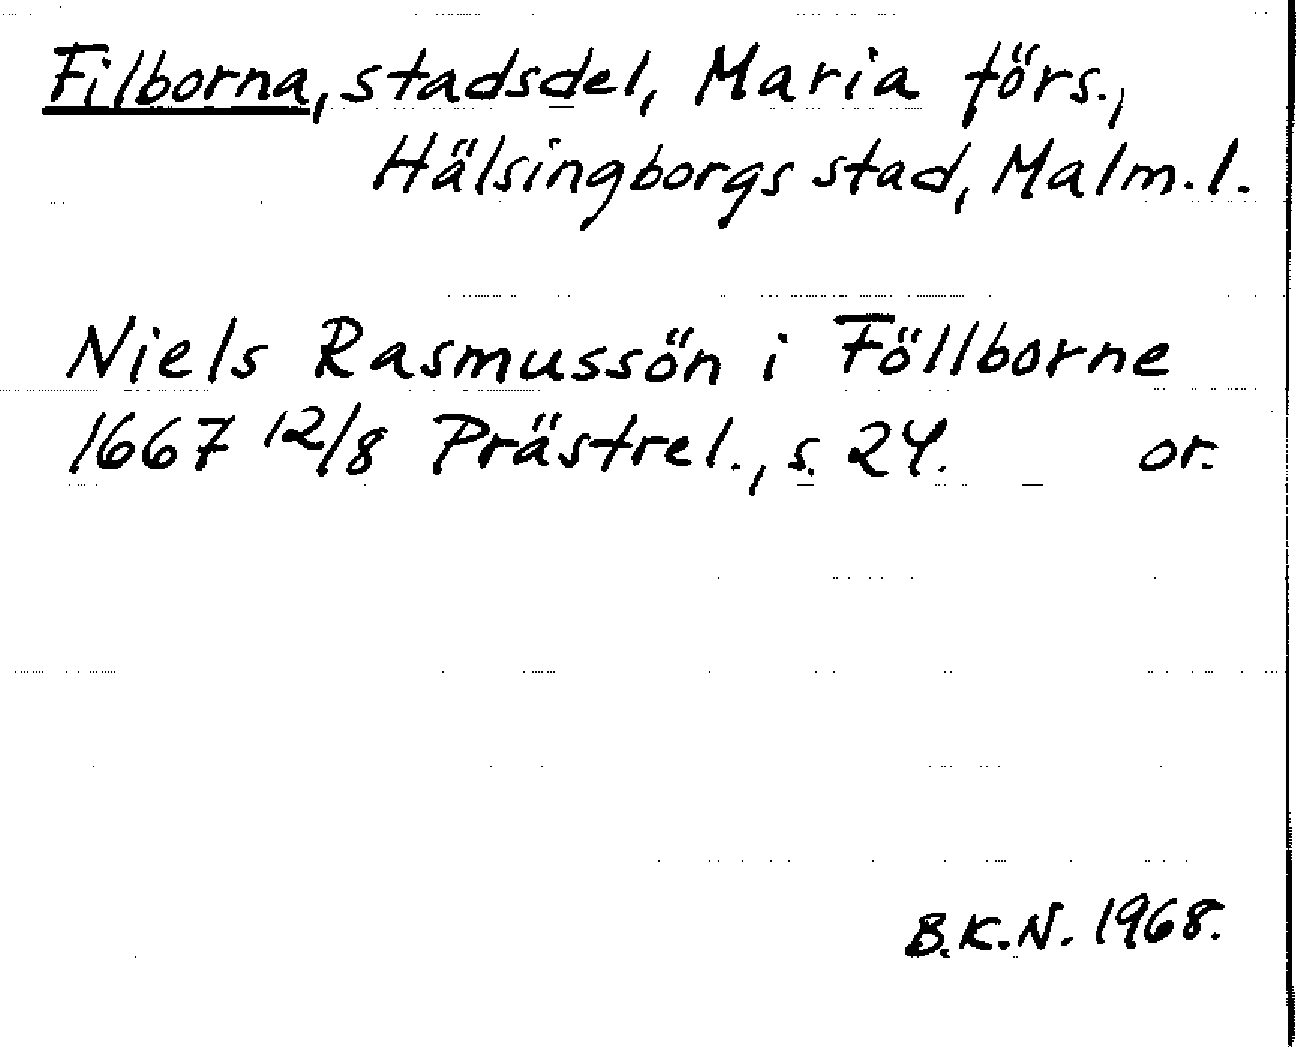 Filborna, stadsdel, Maria förs.,
Hälsingborgs stad, Malm. l.
Niels Rasmussön i Föllborne
1667 12/8 Prästrel., s. 24. or.
B.K.N. 1968.